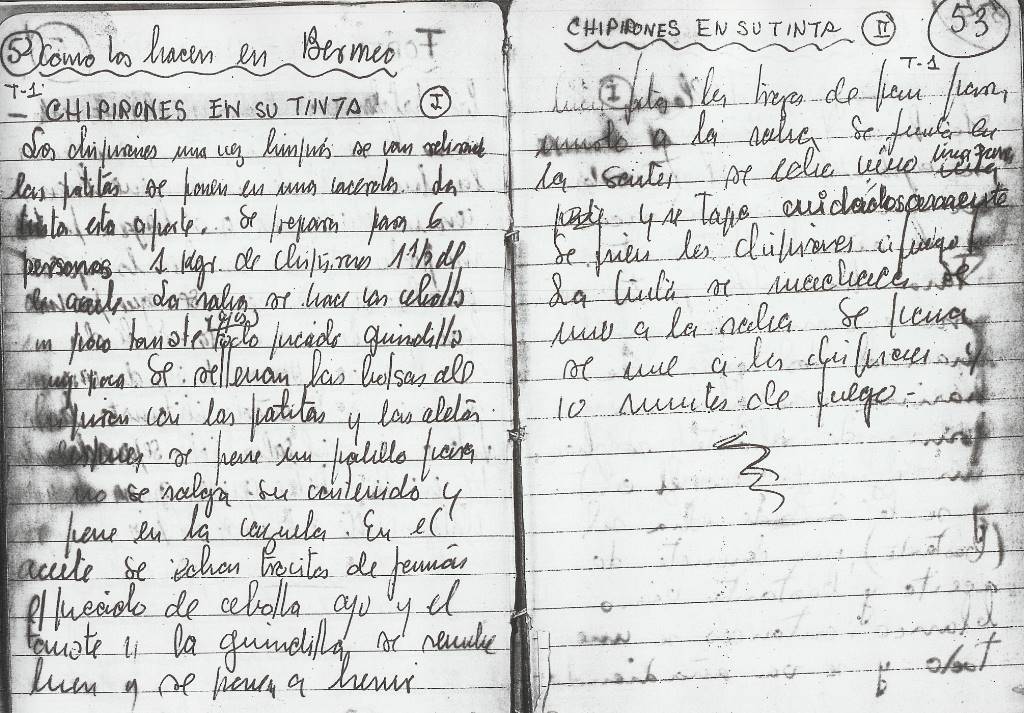 52 Como los hacen en Bermeo
T-1
- CHIPIRONES EN SU TINTA I
Los chipirones una vez limpios se van
las patitas se ponen en una cacerola. La
tinta esta aparte. Se prepara para 6
personas 1 kgr. de chipirones 1 1/2 dl
de aceite. La salsa se hace con cebolla
un poco tomate (ajo) todo picado guindilla
muy poca Se rellenan las bolsas del
chipiron con las patitas y las aletas
despues se pone un palillo para
no se salga su contenido y
pone en la cazuela. En el
aceite se echan trocitos de jamón
el picado de cebolla ajo y el
tomate y la guindilla, se remueve
bien y se pone a hervir
CHIPIRONES EN SU TINTA II 53
T-1
I los trozos de pan para
a la salsa Se
la se echa vino
y se tapa cuidadosamente
Se los chipirones a fuego
La tinta se machaca se
une a la salsa. Se pasa
se une a los chipirones
10 minutos de fuego.